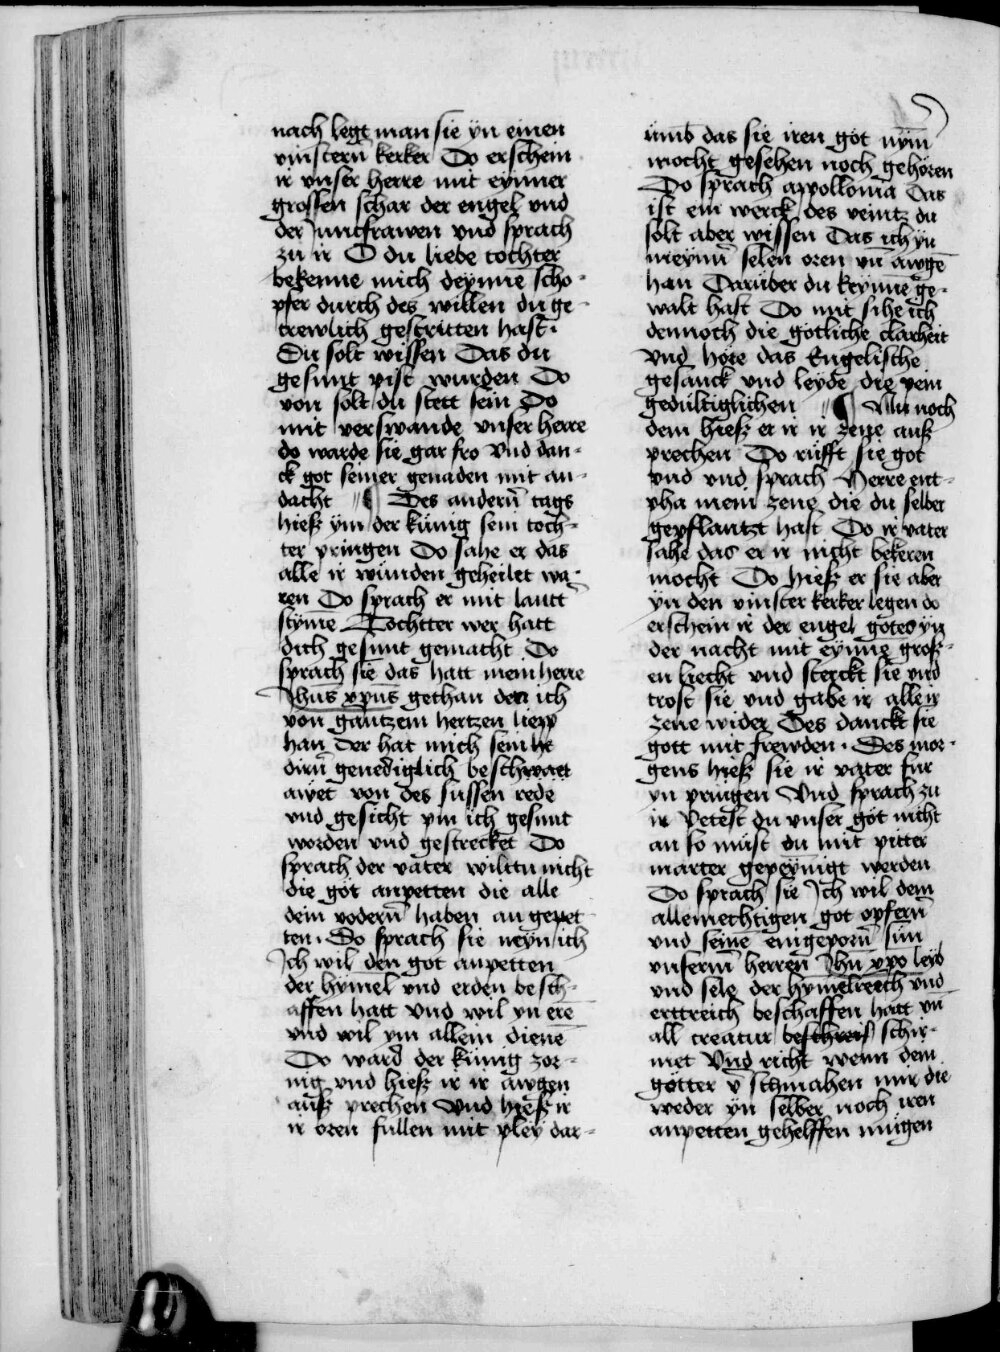 nach legt man sie yn einen
vinstern̄ kerker Do erschein
ir vnser herre mit eynner
grossen schar der engel vnd
der Junckfrawen vnd sprach
zu ir O du liebe tochter
bekenne mich deynnē scho-
pfer durch des willen du ge-
trewlich gestritten hast.
Du solt wissen Das du
gesunt pist wurden Do
von solt du stett sein Do
mit verswande vnser herre
do warde sie gar fro Vnd dan-
ck got seiner genaden mit an-
dacht ¶ Des andern̄ tags
hiesz ym der künig sein toch-
ter pringen Do sahe er das
alle ir wunden geheilet wa-
ren Do sprach er mit lautt
stÿme Tochtter wer hatt
dich gesunt gemacht Do
sprach sie das hatt mein herre
Jhūs xpūs gethan den ich
von gantzem hertzen liepp
han Der hat mich sein
dirn̄ genediglich beschwatt
awet von des sussen rede
vnd gesicht pin ich gesunt
worden vnd gestrecket Do
sprach der vater wilttu nicht
die göt anpetten die alle
dein vodern̄ haben an gepet
ten. Do sprach sie neyn ich
Ich wil den got anpetten
der hymel vnd erden besch-
affen hatt Vnd wil yn erē
vnd wil ym allein dienē
Do ward der künig zor-
nig vnd hiesz ir ir awgen
ausz prechen Vnd hiesz ir
ir oren fullen mit pley dar-
ümb das sie iren got nym̄
mocht gesehen noch gehören
Do sprach appollonia Das
ist ein werck des veintz du
solt aber wissen Das ich yn
meynn̄ selen oren vn̄ awgē
han Darüber du keynne ge-
walt hast Do mit sihe ich
dennoch die gotliche clarheit
Vnd höre das Engelische
gesanck vnd leyde die pein
gedultiglichen ¶ Nu noch
dem hiesz er ir ir zene ausz
prechen Do rüfft sie got
vnd vnd sprach Herre ent-
pha mein zene die du selber
gepflantzt hast Do ir vater
sahe das er ir nicht bekeren
mocht Do hiesz er sie aber
yn den vinster kerker legen do
erschein ir der engel gotes yn
der nacht mit eynnē grosz-
en liecht vnd sterckt sie vnd
trost sie vnd gabe ir alle ir
zene wider Des danckt sie
gott mit frewden. Des mor-
gens hiesz sie ir vater fur
yn pringen Vnd sprach zu
ir Petest du vnser göt nicht
an so müst du mit pitter
marter gepeynigt werden
Do sprach sie Ich wil dem
allemechtigen got opfern̄
vnd seinē eingeporn̄ sün
vnserm herren̄ Jhū xpo leyb
vnd sele der hymelreich vnd
erttreich beschaffen hatt vn̄
all creatur beschreis schir-
met Vnd richt wenn dem
götter v̄ schmahen mir die
weder yn selber noch iren
anpetten gehelffen mügen